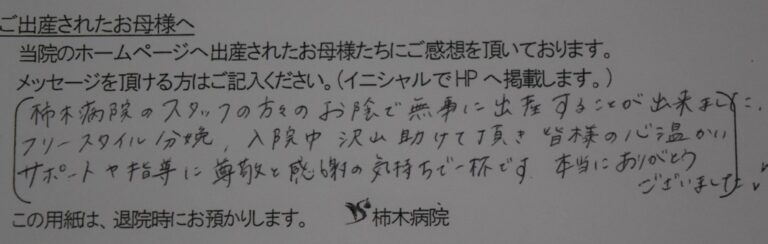 ご出産されたお母様へ
当院のホームページへ出産されたお母様たちにご感想を頂いております。
メッセージを頂ける方はご記入ください。(イニシャルでHPへ掲載します。)
柿木病院のスタッフの方々のお陰で無事に出産することが出来ました。
フリースタイル分娩、入院中沢山助けて頂き皆様の心温かい
サポートや指導に尊敬と感謝の気持ちで一杯です。本当にありがとう
ございました。
この用紙は、退院時にお預かりします。 柿木病院